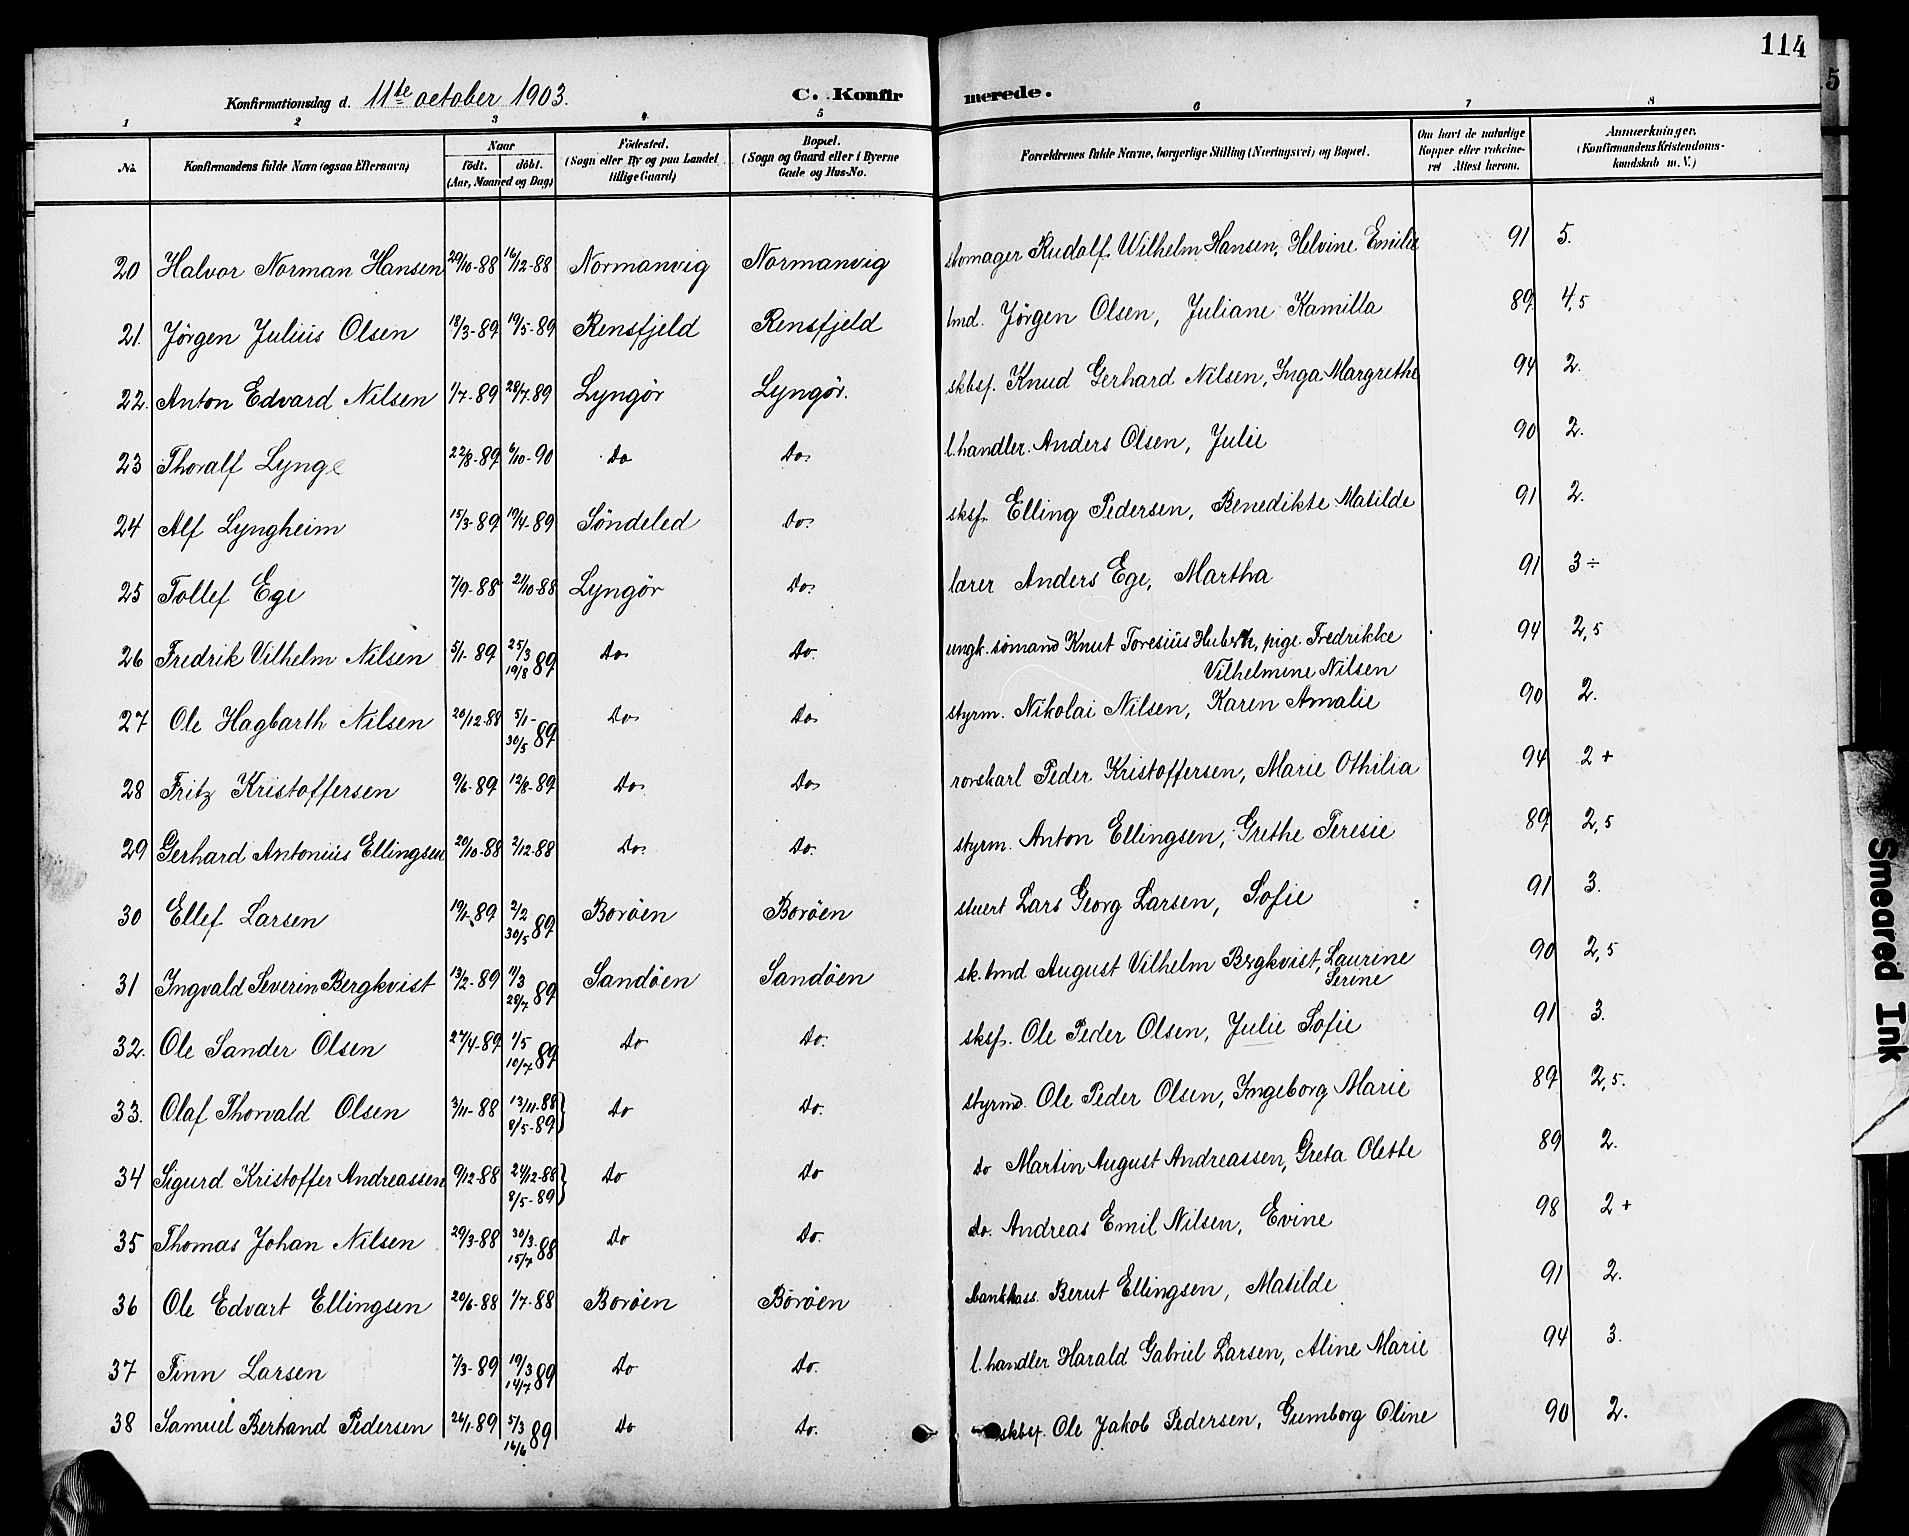 114
Konfirmationsdag d. 11te october 1903. C. Konfirmerede.
1 2 3 4 5 6 7 8
No. Konfirmandens fulde Navn (ogsaa Efternavn) Naar født. døbt. (Aar, Maaned og Dag) Fødested. (Sogn eller By og paa Landet tillige Gaard) Bopæl. (Sogn og Gaard eller i Byerne Gade og Hus-No. Forældrenes fulde Navne, borgerlige Stilling (Næringsvei) og Bopæl. Om havt de naturlige Kopper eller vakcineret Attest herom. Anmærkninger. (Konfirmandens Kristendomskundskab m. V.)
20 Halvor Norman Hansen 29/10-88 16/12-88 Normanvig Normanvig skomager Rudolf Wilhelm Hansen, Helvine Emilie 91 5.
21. Jörgen Julius Olsen 18/3-89 19/5-89 Rensfjeld Rensfjeld tmd. Jörgen Olsen, Juliane Kamilla 89 4,5
22. Anton Edvard Nilsen 1/7-89 28/7-89 Lyngør Lyngør. skbsf. Knud Gerhard Nilsen, Inga Margrethe 94 2.
23 Thoralf Lynge 22/8-89 6/10-90 Do Do. l. handler. Anders Olsen, Julie 90 2.
24 Alf Lyngheim 15/3-89 19/4-89 Søndeled Do. sksf. Elling Pedersen, Benedikte Matilde 91 2.
25 Tollef Ege 7/9-88 21/10-88 Lyngør Do. lærer Anders Ege, Martha 91 3 ÷
26 Fredrik Vilhelm Nilsen 5/1-89 25/3 19/8 89 Do. Do. ungk. sømand Knut Toresius, pige Fredrikke Vilhelmine Nilsen 94 2,5
27 Ole Hagbarth Nilsen 20/12-88 5/1- 30/5 89 Do. Do. styrm. Nikolai Nilsen, Karen Amalie 90 2.
28 Fritz Kristoffersen 9/6-89 12/8-89 Do. Do. rorskarl Peder Kristoffersen, Marie Othilia 94 2 +
29 Gerhard Antonius Ellingsen 20/10-88 2/12-88 Do. Do. styrm. Anton Ellingsen, Grethe Teresie 89 2,5
30 Ellef Larsen 19/1-89 2/2 30/5 89 Borøen Borøen stuert Lars Georg Larsen, Sofie 91 3.
31 Ingvald Severin Bergkvist 13/2-89 11/3 28/7 89 Sandøen Sandøen sk. tmd August Vilhelm Bergkvist, Laurine Serine 90 2,5
32. Ole Sander Olsen 27/4-89 1/5 10/7 89 Do Do. sksf. Ole Peder Olsen, Julie Sofie 91 3.
33. Olaf Thorvald Olsen 3/11-88 13/11-88 8/5-89 } Do Do. styrmd. Ole Peder Olsen, Ingeborg Marie 89 2,5.
34 Sigurd Kristoffer Andreassen 9/12-88 24/12-88 8/5-89 } Do Do do Martin August Andreassen, Greta Olette 89 2.
35 Thomas Johan Nilsen 29/3-88 30/3- 15/7 88 Do Do. do. Andreas Emil Nilsen, Evine 98 2 +
36 Ole Edvart Ellingsen 20/6-88 1/7-88 Borøen Borøen bankkass. Berut Ellingsen, Matilde 91 2.
37 Finn Larsen 7/3-89 19/3 14/7 89 Do Do. l. handler Harald Gabriel Larsen, Aline Marie 94 3.
38 Samuel Berhand Pedersen 26/1-89 5/3 16/6 89 Do Do. skbsf. Ole Jakob Pedersen, Gumborg Oline 90 2.
Smeared Ink